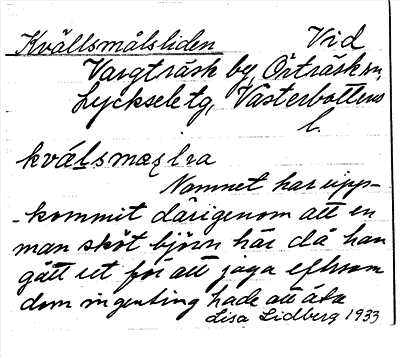 Kvällsmålsliden Vid
Vargträsk by, Örträsk sn,
Lycksele tg, Västerbottens
l.
kvälsmæʒlra
Namnet har upp-
-kommit därigenom att en
man sköt björn här då han
gått ut för att jaga eftersom
dom ingenting hade att äta
Lisa Lidberg 1933